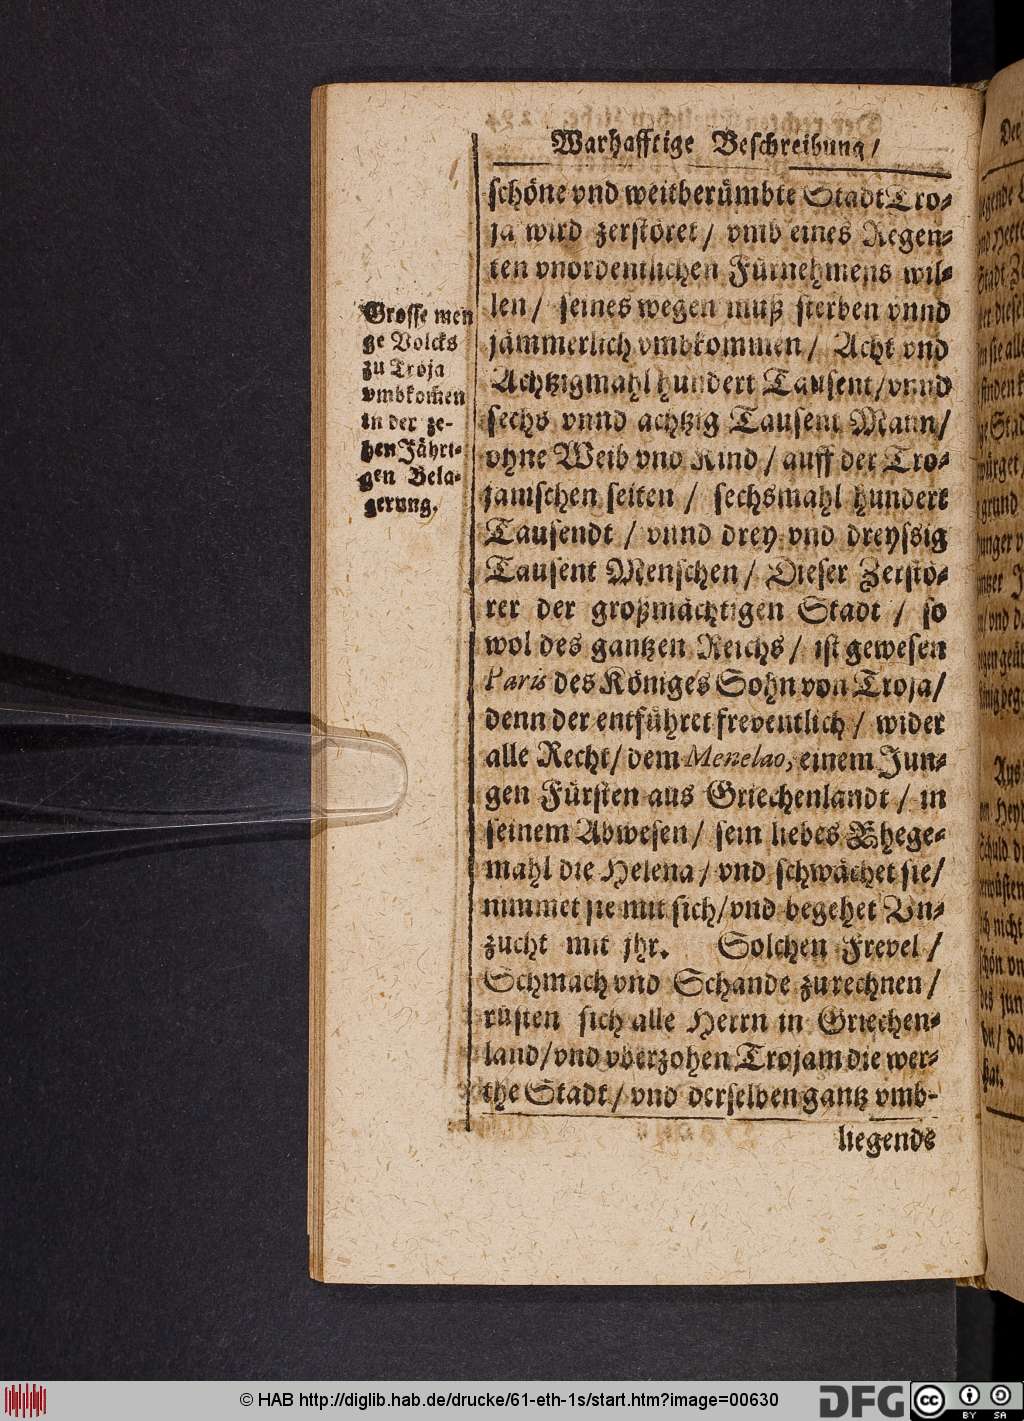 Warhafftige Beschreibung/
schöne vnd weitberümbte Stadt Tro-
ja wird zerstöret/ vmb eines Regen-
ten vnordentlichen Fürnehmens wil-
len/ seines wegen muß sterben vnnd
jämmerlich vmbkommen/ Acht vnd
Achtzigmahl hundert Tausent/vnnd
sechs vnnd achtzig Tausent Mann/
ohne Weib vnd Kind/auff der Tro-
janischen seiten / sechsmahl hundert
Tausendt / vnnd drey vnd dreyssig
Tausent Menschen/ Dieser Zerstö-
rer der großmächtigen Stadt / so
wol des gantzen Reichs/ ist gewesen
Paris des Königes Sohn von Troja/
denn der entführet freventlich/ wider
alle Recht/ dem Menelao, einem Jun-
gen Fürsten aus Griechenlandt/ in
seinem Abwesen/ sein liebes Ehege-
mahl die Helena/ vnd schwächet sie/
nimmet sie mit sich/vnd begehet Vn-
zucht mit jhr. Solchen Frevel/
Schmach vnd Schande zurechnen/
rüsten sich alle Herrn in Griechen-
land/vnd vberzohen Trojam die wer-
the Stadt/ vnd derselben gantz vmb-
liegende
Grosse men
ge Volcks
zu Troja
vmbkom̃en
in der ze-
hen Jähri-
gen Bela-
gerung.
© HAB http://diglib.hab.de/drucke/61-eth-1s/start.htm?image=00630
DFG
cc
BY SA